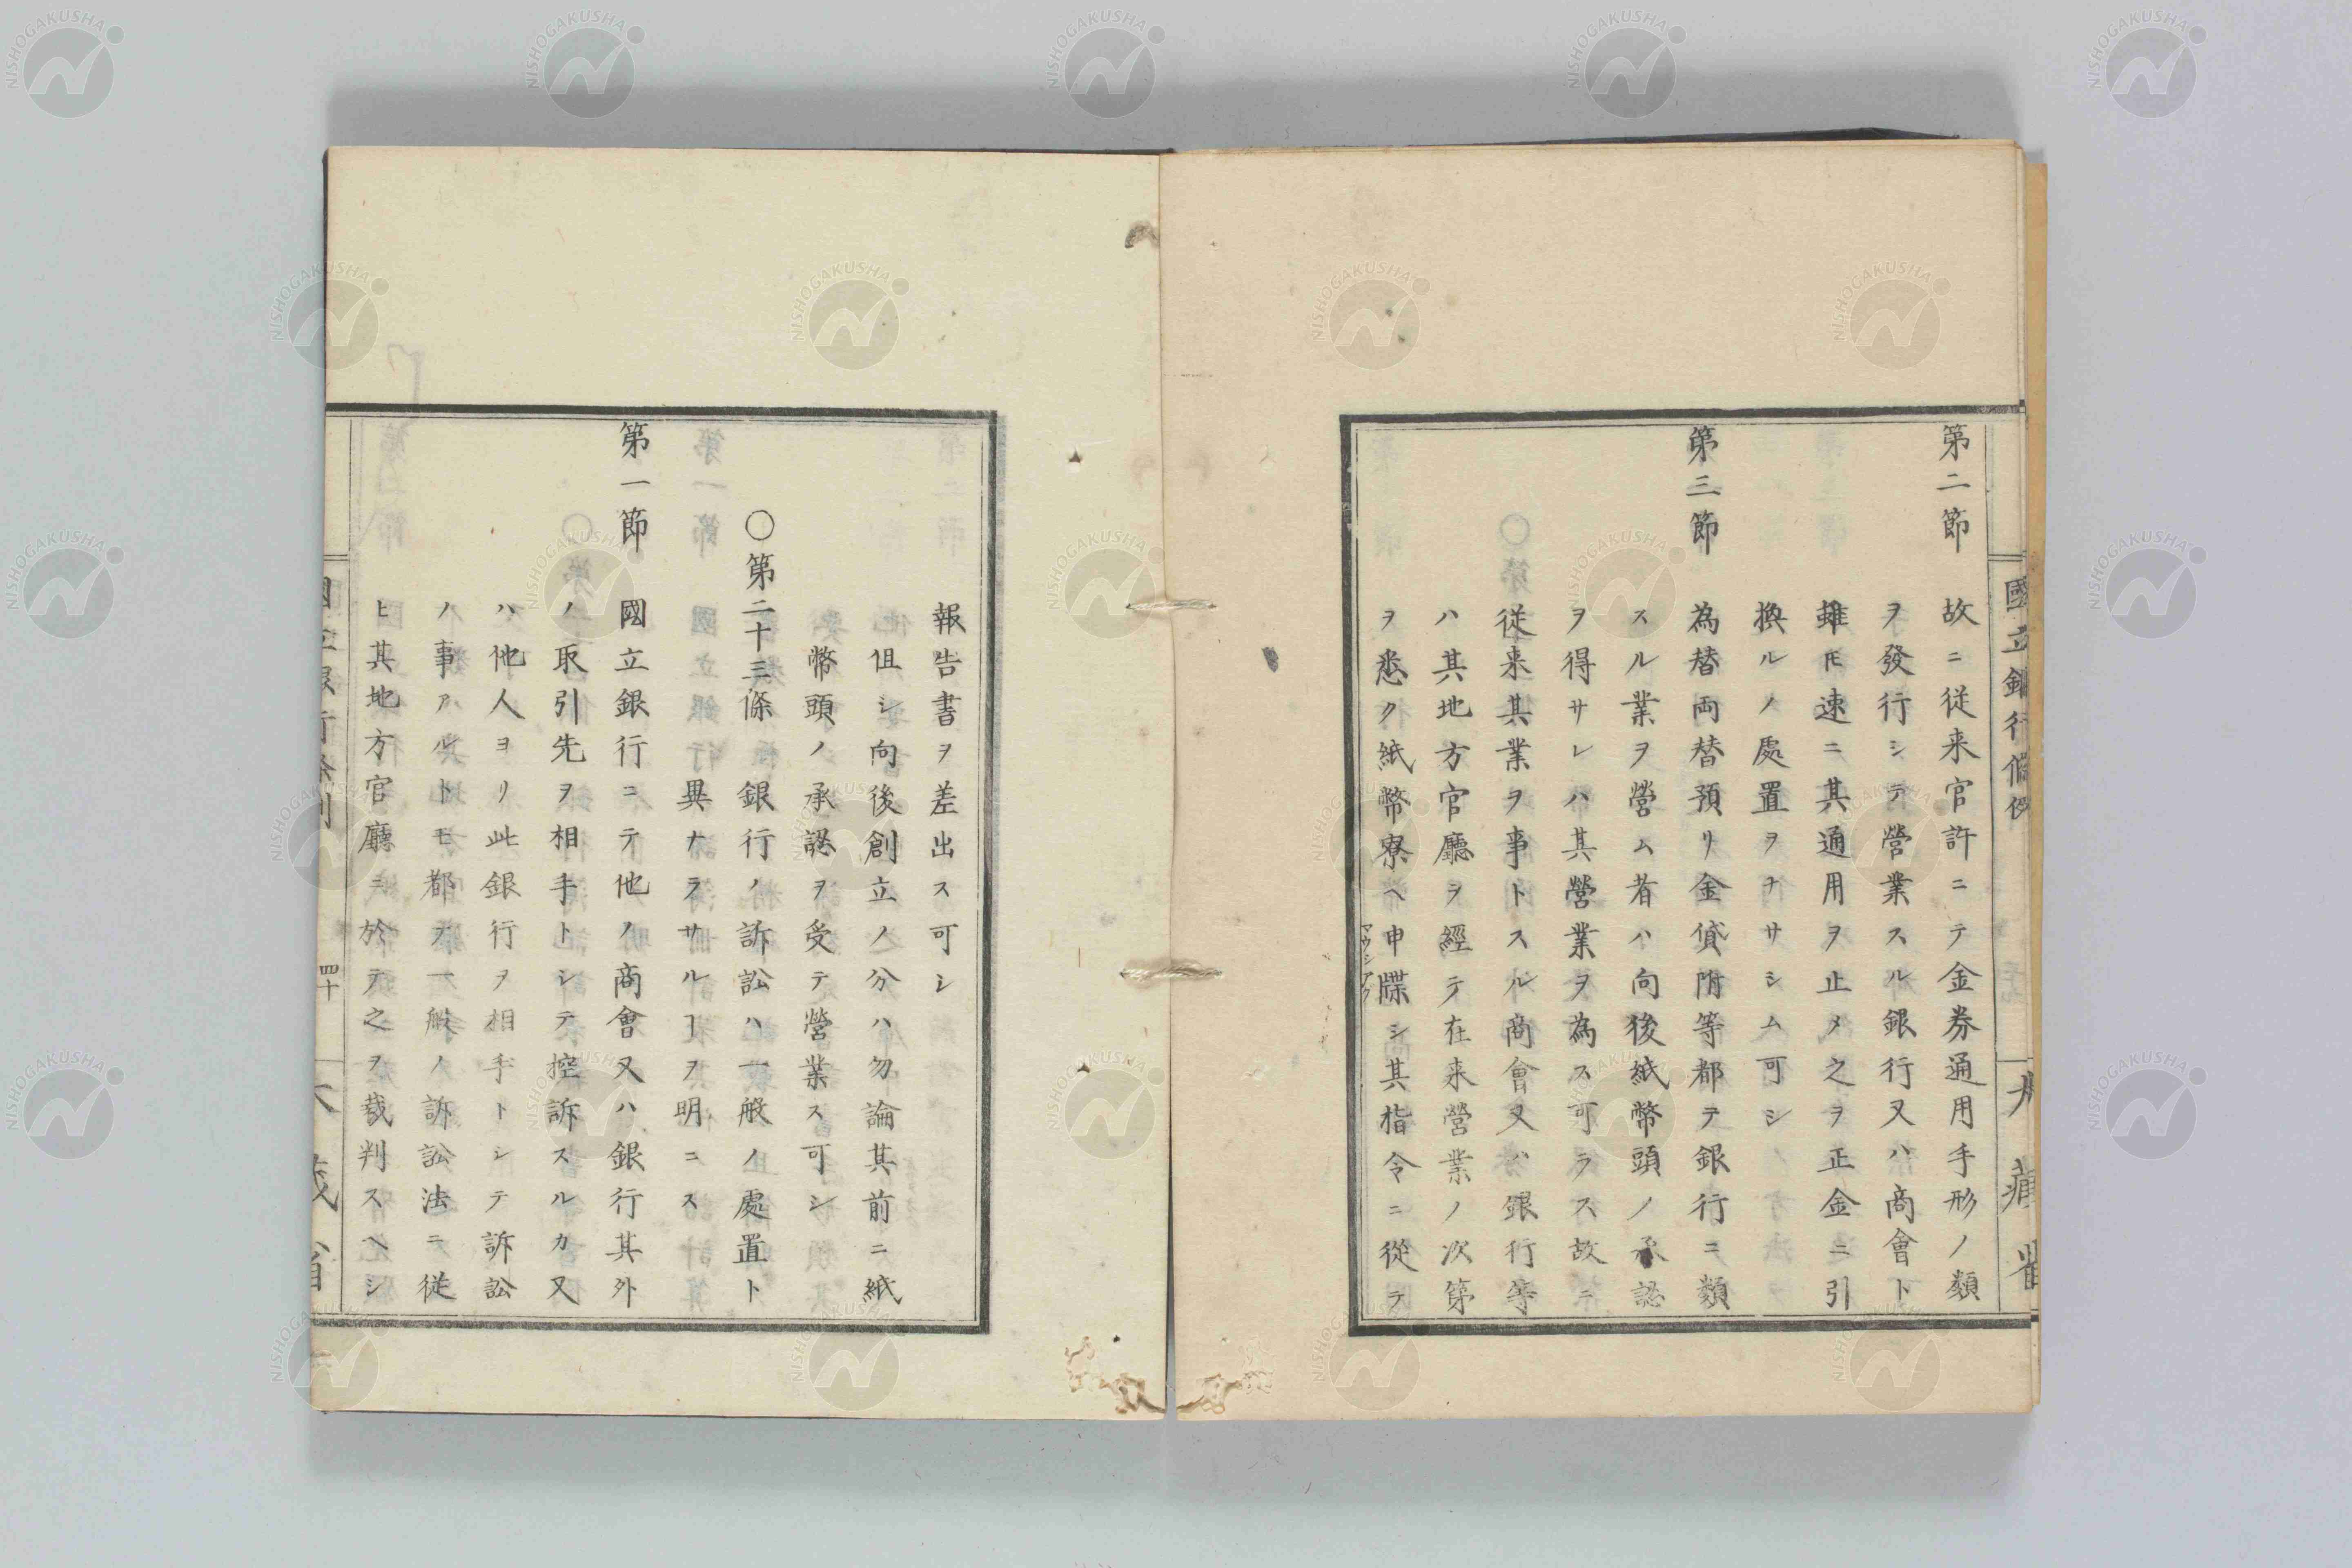 國立銀行條例
第二節 故ニ従来官許ニテ金券通用手形ノ類
ヲ發行シテ營業スル銀行又ハ商會ト
雖𪜈速ニ其通用ヲ止メ之ヲ正金ニ引
換ルノ處置ヲナサシム可シ
第三節 為替両替預リ金貸附等都テ銀行ニ類
スル業ヲ營ム者ハ向後紙幣頭ノ承認
ヲ得サレハ其營業ヲ為ス可ラス故ニ
従来其業ヲ事トスル商會又ハ銀行等
ハ其地方官廳ヲ經テ在来營業ノ次第
ヲ悉ク紙幣寮ヘ申牒シ其指令ニ從テ
報告書ヲ差出ス可シ
但シ向後創立ノ分ハ勿論其前ニ紙
幣頭ノ承認ヲ受テ營業ス可シ
〇第二十三條 銀行ノ訴訟ハ一般ノ處置ト
異ナラサルヿヲ明ニス
第一節 國立銀行ニテ他ノ商會又ハ銀行其外
ノ取引先ヲ相手トシテ控訴スルカ又
ハ他人ヨリ此銀行ヲ相手トシテ訴訟
ノ事アルトモ都テ一般ノ訴訟法ニ従
ヒ其地方官廳ニ於テ之ヲ裁判スヘシ
四十
NISHOGAKUSHA